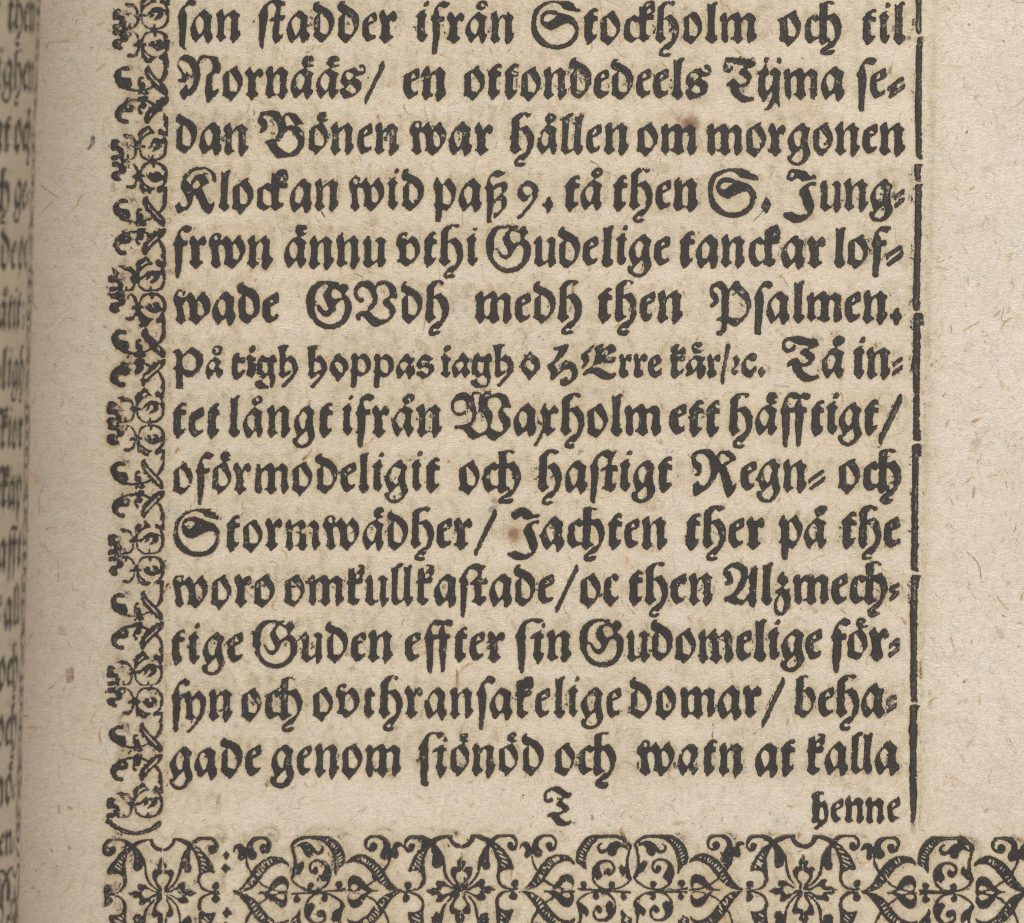 san stadder ifrån Stockholm och til
Nornääs/ en ottondedeels Tijma se-
dan Bönen war hållen om morgonen
Klockan wid paß 9. tå then S. Jung-
frwn ännu vthi Gudelige tanckar lof-
wade GVdh medh then Psalmen.
På tigh hoppas iagh o HErre kär/ꝛc. Tå in-
tet långt ifrån Waxholm ett häfftigt/
oförmodeligit och hastigt Regn- och
Stormwädher/ Jachten ther på the
woro omkullkastade/oc then Alzmech-
tige Guden effter sin Gudomelige för-
syn och ovthransakelige domar/ beha-
gade genom siönöd och watn at kalla
T henne